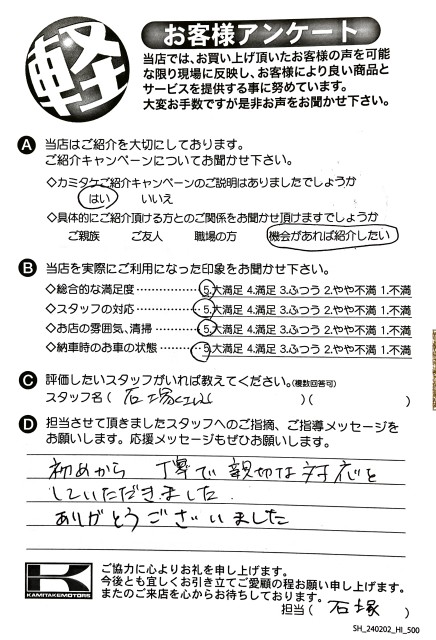 軽
お客様アンケート
当店では、お買い上げ頂いたお客様の声を可能
な限り現場に反映し、お客様により良い商品と
サービスを提供する事に努めています。
大変お手数ですが是非お声をお聞かせ下さい。
A 当店はご紹介を大切にしております。
ご紹介キャンペーンについてお聞かせ下さい。
◇カミタケご紹介キャンペーンのご説明はありましたでしょうか
はい いいえ
◇具体的にご紹介頂ける方とのご関係をお聞かせ頂けますでしょうか
ご親族 ご友人 職場の方 機会があれば紹介したい
B 当店を実際にご利用になった印象をお聞かせ下さい。
◇総合的な満足度 5.大満足 4.満足 3.ふつう 2.やや不満 1.不満
◇スタッフの対応 5.大満足 4.満足 3.ふつう 2.やや不満 1.不満
◇お店の雰囲気、清掃 5.大満足 4.満足 3.ふつう 2.やや不満 1.不満
◇納車時のお車の状態 5.大満足 4.満足 3.ふつう 2.やや不満 1.不満
C 評価したいスタッフがいれば教えてください。(複数回答可)
スタッフ名 ( 石塚さん )( )
D 担当させて頂きましたスタッフへのご指摘、ご指導メッセージを
お願いします。応援メッセージもぜひお願いします。
初めから 丁寧で親切な対応を
していただきました.
ありがとうございました
K
KAMITAKEMOTORS
ご協力に心よりお礼を申し上げます。
今後とも宜しくお引き立てご愛顧の程お願い申し上げます。
またのご来店を心からお待ちしております。
担当 ( 石塚 )
SH_240202_HI_500